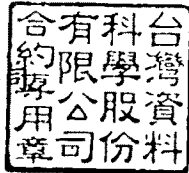 台灣資料
科學股份
有限公司
合約專用章